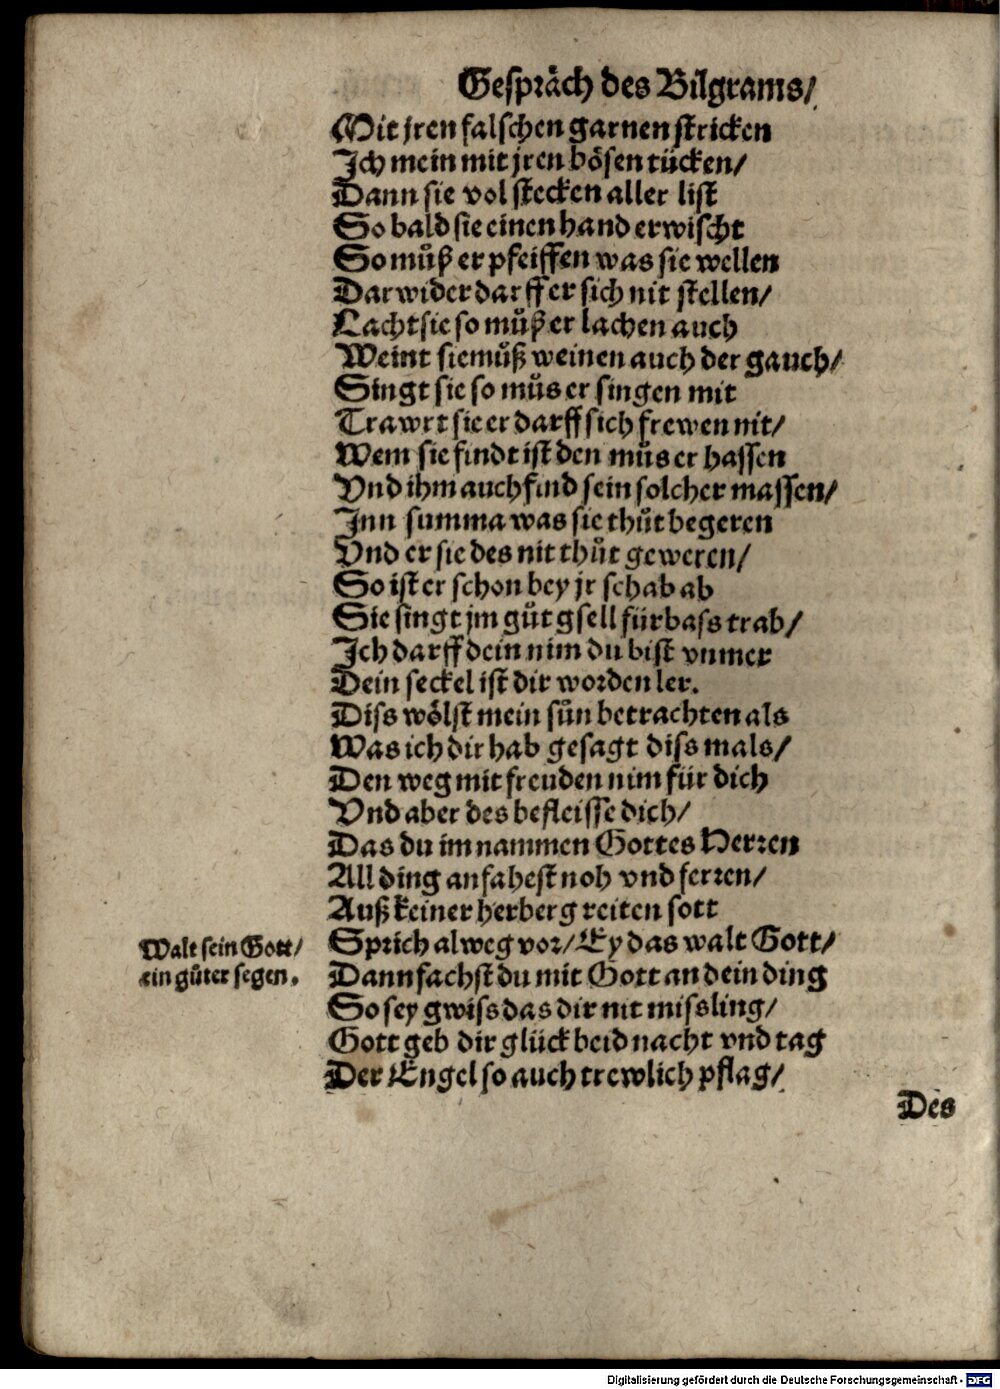 Gespräch des Bilgrams/
Mit jren falschen garnen stricken
Ich mein mit jren bösen tücken/
Dann sie vol stecken aller list
So bald sie einen hand erwischt
So muͦß er pfeiffen was sie wellen
Darwider darff er sich nit stellen/
Lacht sie so muͦß er lachen auch
Weint sie muͦß weinen auch der gauch/
Singt sie so muͦs er singen mit
Trawrt sie er darff sich frewen nit/
Wem sie findt ist den muͦs er hassen
Vnd ihm auch find sein solcher massen/
Inn summa was sie thuͦt begeren
Vnd er sie des nit thuͦt geweren/
So ist er schon bey jr schab ab
Sie singt jm guͦt gsell fürbass trab/
Ich darff dein nim du bist vnmer
Dein seckel ist dir worden ler.
Diss wölst mein suͦn betrachten als
Was ich dir hab gesagt diss mals/
Den weg mit freuden nim für dich
Vnd aber des befleisse dich/
Das du im nammen Gottes Herren
All ding anfahest noh vnd ferren/
Auß keiner herberg reiten sott
Walt sein Gott/
ein guͦter segen.
Sprich alweg vor/ Ey das walt Gott/
Dann fachst du mit Gott an dein ding
So sey gwiss das dir nit missling/
Gott geb dir glück beid nacht vnd tag
Der Engel so auch trewlich pflag/
Des
Digitalisierung gefördert durch die Deutsche Forschungsgemeinschaft - DFG